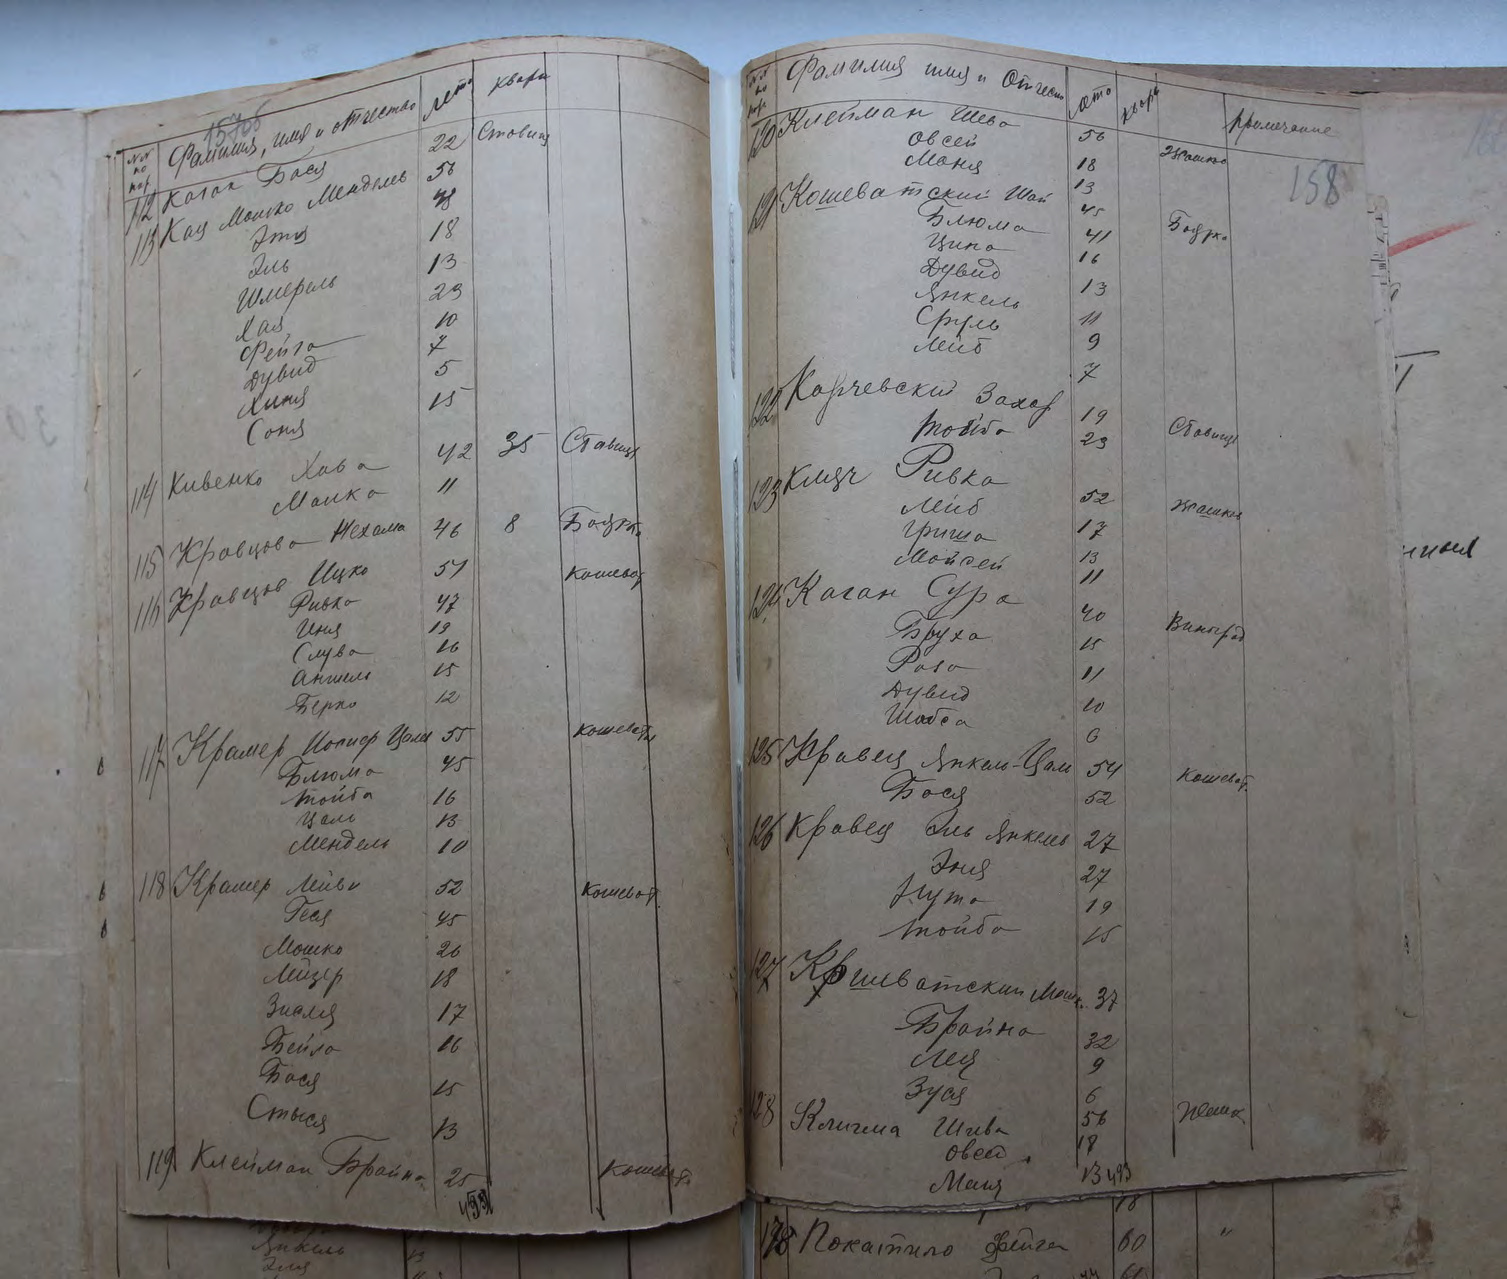 157об
№№ по пор. Фамилия, имя и отчество лета Квар
112 Каган Бася 22 Ставищ
113 Кац Мошко Мендель 56
Этя 48
Эль 18
Шмерель 13
Хая 23
Фейга 10
Дувид 7
Хиня 5
Соня 15
114 Кивенко Хава 42 35 Ставище
Малка 11
115 Кравцова Нехама 46 8 Богук.
116 Кравцов Ицко 51 Кошеват
Ривка 47
Иня 19
Слува 16
Аншель 15
Берко 12
117 Крамер Иосиф Цаль 55 Кошеваты
Блюма 45
Тойба 16
Цаль 13
Мендель 10
118 Крамер Лейви 52 Кошеват.
Геся 45
Мошко 20
Лейзер 18
Знамя 17
Бейла 16
Бася 15
Стыся 13
119 Клейман Брайна 25 Кошеват.
493
№№ по пор. Фамилия имя и Отчеств Лета Квар Примечание
158
120 Клейман Шева 56 Жашков
Овсей 18
Маня 13
121 Кошеватский Шая 45 Богук
Блюма 41
Ципа 16
Дувид 13
Янкель 11
Сруль 9
Лейб 7
122 Карчевский Захар 19 Ставище
Тойба 23
123 Клигч Ривка 52 Жашков
Лейб 17
Гриша 13
Мойсей 11
124 Каган Сура 40 Виноград
Бруха 15
Роза 11
Дувид 10
Шабса 6
125 Кравец Янкель-Цаль 54 Кошеват.
Бася 52
126 Кравец Эль Янкель 27
Эня 27
Нута 19
Тойба 15
127 Кошеватский Мошк. 37
Брайна 32
Лея 9
Зуся 6
128 Клигма Шива 56 Жашк
Овсей 18
Маня 13 493
Янкель 13
Эля
178 Покатило Фейга 60 "